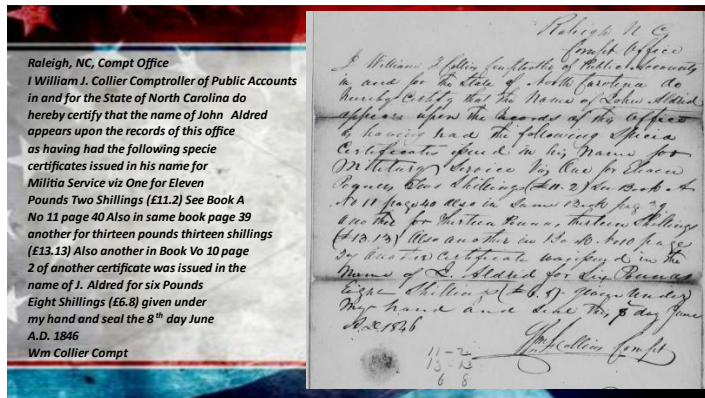 Raleigh, NC, Compt Office
I William J. Collier Comptroller of Public Accounts
in and for the State of North Carolina do
hereby certify that the name of John Aldred
appears upon the records of this office
as having had the following specie
certificates issued in his name for
Militia Service viz One for Eleven
Pounds Two Shillings (£11.2) See Book A
No 11 page 40 Also in same book page 39
another for thirteen pounds thirteen shillings
(£13.13) Also another in Book Vo 10 page
2 of another certificate was issued in the
name of J. Aldred for six Pounds
Eight Shillings (£6.8) given under
my hand and seal the 8th day June
A.D. 1846
Wm Collier Compt
Raleigh N C
Compt Office
I William J Collins Comptroller of Public Accounts
in and for the State of North Carolina do
hereby Certify that the Name of John Aldrid
appears upon the records of this office
as having had the following Specie
Certificates issued in his Name for
Military Service Viz One for Eleven
Pounds Two Shillings (£11.2) See Book A
No 11 page 40 also in Same Book pag 39
another for thirteen Pounds thirteen Shillings
(£13.13) Also another in Book No 10 page
another Certificate was issued in the
Name of J. Aldrid for Six Pounds
Eight Shillings (£6.8) given under
My hand and Seal this 8 day June
A.D. 1846
Wm J Collins Compt
11-2
13-13
6 8